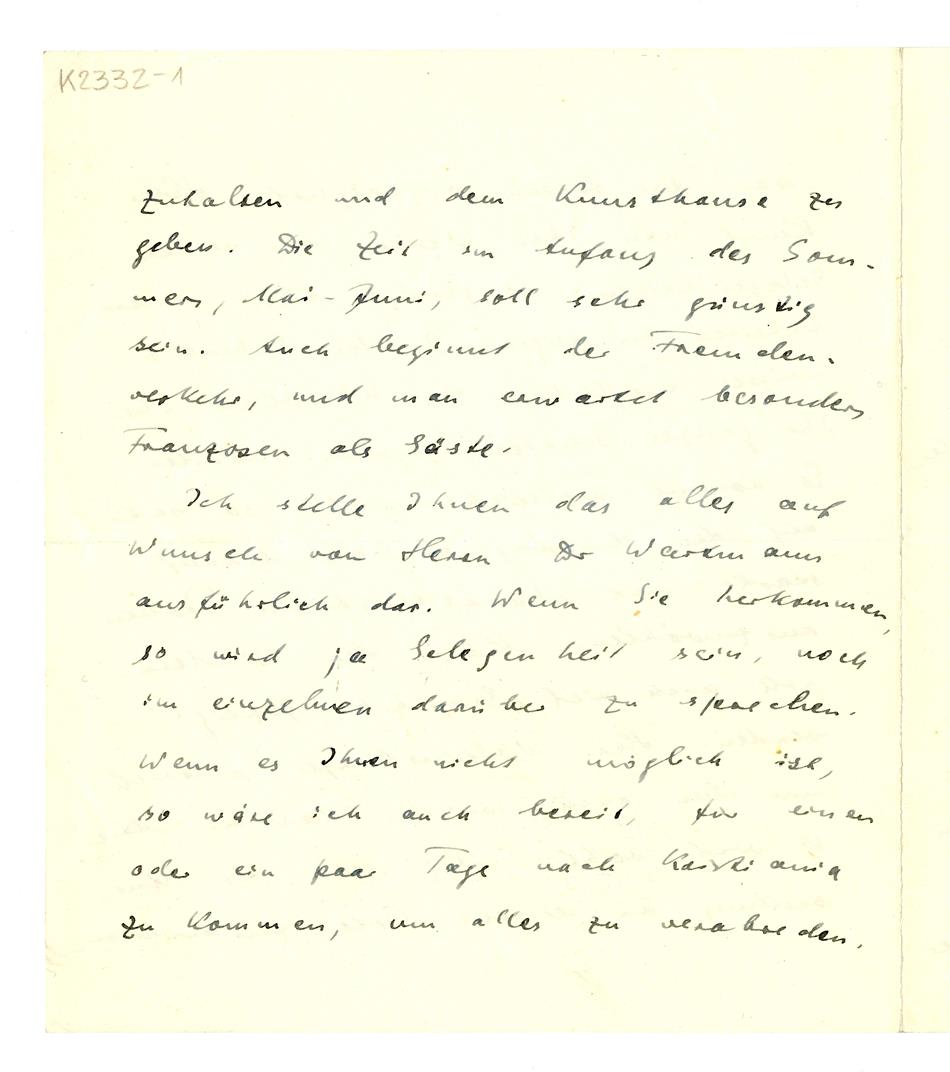 K2332-1
zuhalten und dem Kunsthause zu
geben. Die Zeit im Anfang des Som-
mers, Mai-Juni, soll sehr günstig
sein. Auch beginnt der Fremden-
verkehr, und man erwartet besonders
Franzosen als Gäste.
Ich stelle Ihnen das alles auf
Wunsch von Herrn Dr Wartmann
ausführlich dar. Wenn Sie herkommen,
so wird ja Gelegenheit sein, noch
im einzelnen darüber zu sprechen.
Wenn es Ihnen nicht möglich ist,
so wäre ich auch bereit, für einen
oder ein paar Tage nach Kristiania
zu kommen, um alles zu verabreden.